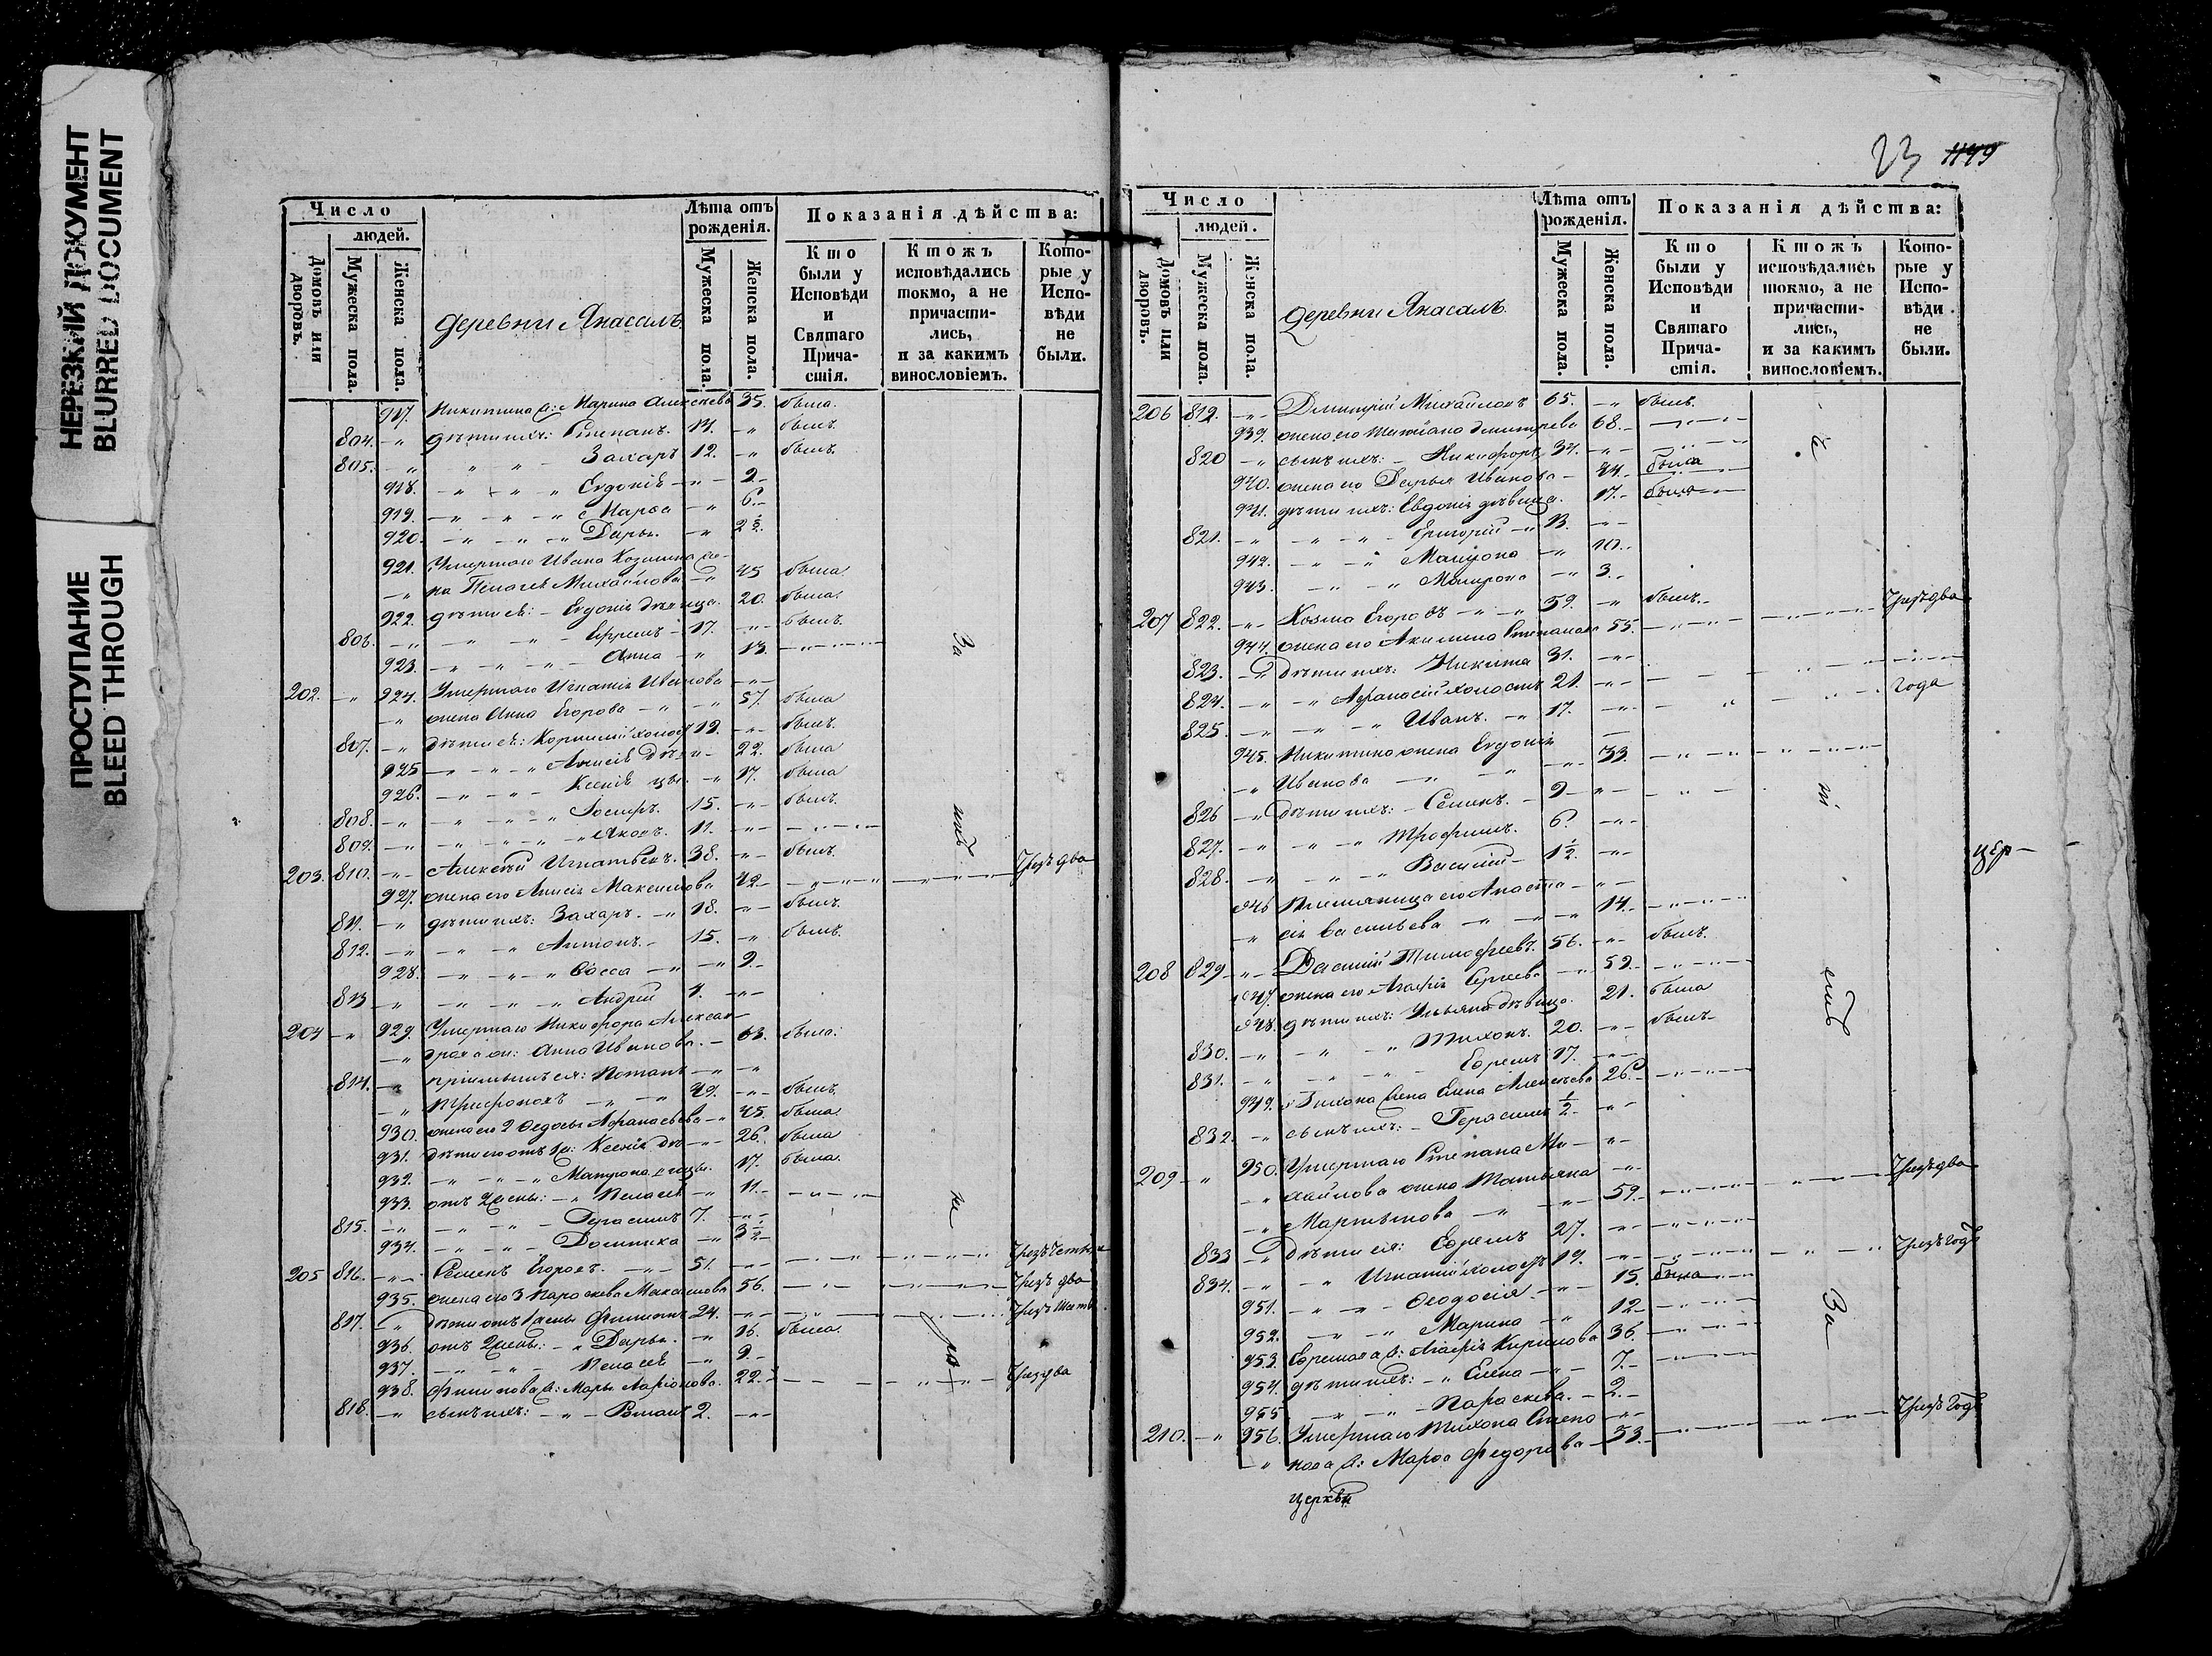 НЕРЕЗКИЙ ДОКУМЕНТ
BLURRED DOCUMENT
ПРОСТУПАНИЕ
BLEED THROUGH
Число
людей.
Домовъ или дворовъ.
Мужеска пола.
Женска пола.
деревни Янасалъ
Лѣта отъ рожденія.
Мужеска пола.
Женска пола.
Показанія дѣйства:
Кто были у Исповѣди и Святаго Причастія.
Ктожъ исповѣдались токмо, а не причастились, и за какимъ винословіемъ.
Которые у Исповѣди не были.
917. Никитина ж: Марина Алексѣева 35. была.
804. дѣти ихъ: Степанъ. 14. былъ.
805. Захаръ 12. былъ.
918. Евдокія 9
919. Марѳа 6.
920. Дарья
921. Умершаго Ивана Козмина же-
на Пелагея Михайлова 45 была
922. дѣти ея: Евдокія дѣвица. 20. была
806. Ефремъ 17. былъ
923. Анна 13.
202. 924. Умершаго Игнатія Иванова
жена Анна Егорова 57. была
807. дѣти ея: Корнилій холост 19. былъ.
925 Анисія дѣ 22. была
926. Ксенія цы. 17. была
808. Іосифъ. 15. былъ.
809. Яковъ. 11.
203. 810. Алексѣй Игнатьевъ. 38. былъ. Чрезъ два
927. жена его Анисія Максимова 42
811. дѣти ихъ: Захаръ. 18. былъ.
812. Антонъ. 15. былъ.
928. Васса 9.
813 Андрей 1.
204 929. Умершаго Никифора Алексан-
дрова ж: Анна Иванова. 63. была.
814. пріимышъ ея: Потапъ
Трифоновъ 49. былъ.
930. жена его 2 Федосья Афанасьева 45. была.
931. дѣти его отъ 1 ж: Ксенія дѣ 26. была
932. Матрона дѣвицы. 17. была.
933. отъ 2 жены: Пелагея 11.
815. Герасимъ 7.
934. Домника 3 ½
205 816. Семенъ Егоровъ. 51.
935. жена его 3 Параскева Максимова 56. Чрезъ два
817. дѣти отъ 1 жены Филиппъ 24.
936. отъ 2 жены: Дарья. 16. была.
937. Пелагея 9.
938. Филиппова ж: Марья Ларіонова. 22. Чрезъ два
818. сынъ ихъ: Романъ 2.
За
не
23 1149
Число
людей.
Домовъ или дворовъ.
Мужеска пола.
Женска пола.
деревни Янасалъ.
Лѣта отъ рожденія.
Мужеска пола.
Женска пола.
Показанія дѣйства:
Кто были у Исповѣди и Святаго Причастія.
Ктожъ исповѣдались токмо, а не причастились, и за какимъ винословіемъ.
Которые у Исповѣди не были.
206 819. Дмитрій Михайловъ 65. былъ.
939. жена его Татіана Дмитрева 68.
820 сынъ ихъ: Никифоръ 34.
940. жена его Дарья Иванова 44. была
941. дѣти ихъ: Евдокія дѣвица. 17. была
821. Григорій 13.
942. Матрона 10.
943. Матрона 3.
207 822. Козма Егоровъ 59. былъ. Чрезъ два
944. жена его Акилина Степанова 55.
823. дѣти ихъ: Никита 31.
824. Афанасій холостъ 21. года
825. Иванъ. 17.
945. Никитина жена Евдокія
Иванова 33.
826 дѣти ихъ: Семенъ. 9
827. Трофимъ. 6.
828. Василій 1 ½.
946 Племянница его Анаста-
сія Васильева 14.
208 829 Василій Тимофеевъ. 56. былъ.
947. жена его Агафія Сергѣева 59.
948. дѣти ихъ: Ульяна дѣвица. 21. была
830. Тихонъ. 20. былъ
831. Ефремъ 17.
949. Тихона жена Елена Алексѣева 26.
832. сынъ ихъ: Герасимъ ½
209 950. Умершаго Степана Ми-
хайлова жена Татьяна Чрезъ два
Мартынова 59.
833 дѣти ея: Ефремъ 27.
834. Игнатій холостъ 19. Чрезъ годъ
951. Ѳеодосія 15. была
952. Марина 12
953. Ефремова ж: Агафія Кирилова 36.
954. дѣти ихъ: Елена 7.
955 Параскева. 2.
210. 956. Умершаго Тихона Степа-
нова ж: Марѳа Федорова 53. Чрезъ годъ
За
цер-
церкви